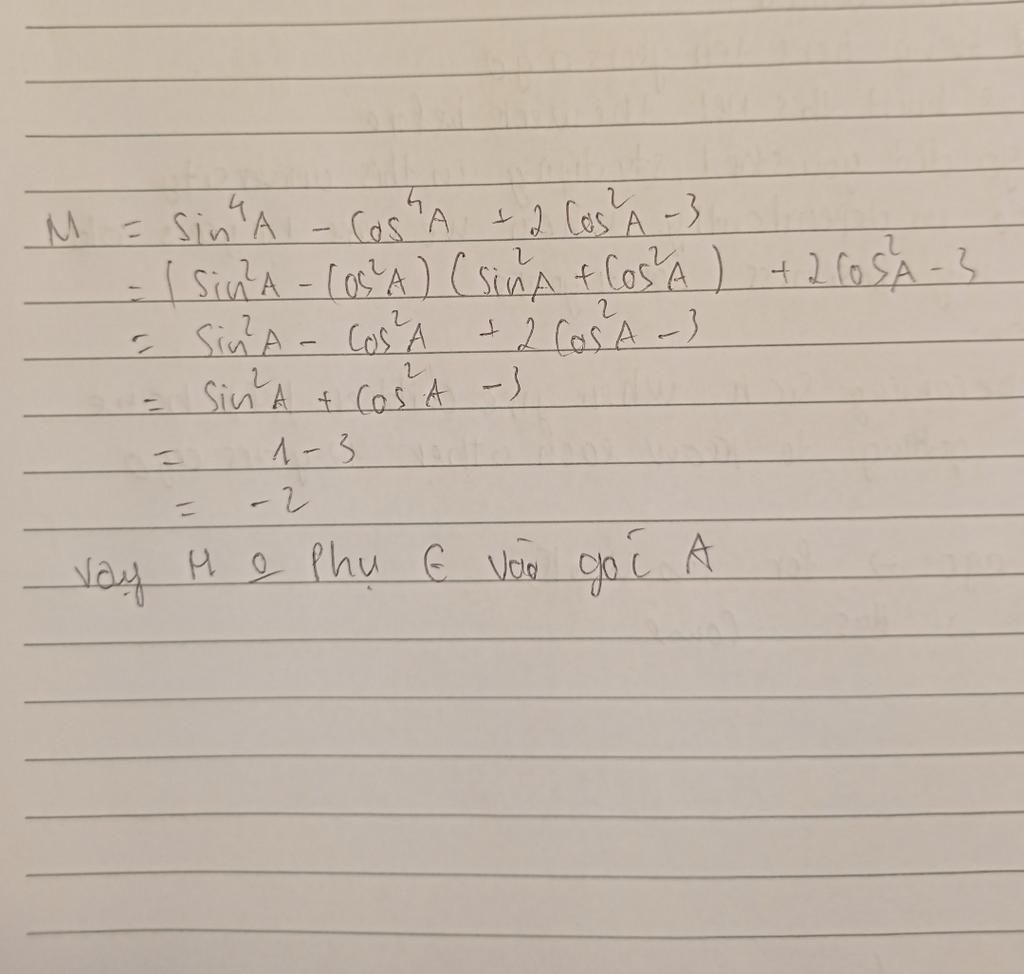 M = Sin⁴A - Cos⁴A + 2 Cos²A - 3
= (Sin²A - Cos²A) (Sin²A + Cos²A) + 2 Cos²A - 3
= Sin²A - Cos²A + 2 Cos²A - 3
= Sin²A + Cos²A - 3
= 1 - 3
= - 2
Vậy M o Phụ ∈ vào góc A